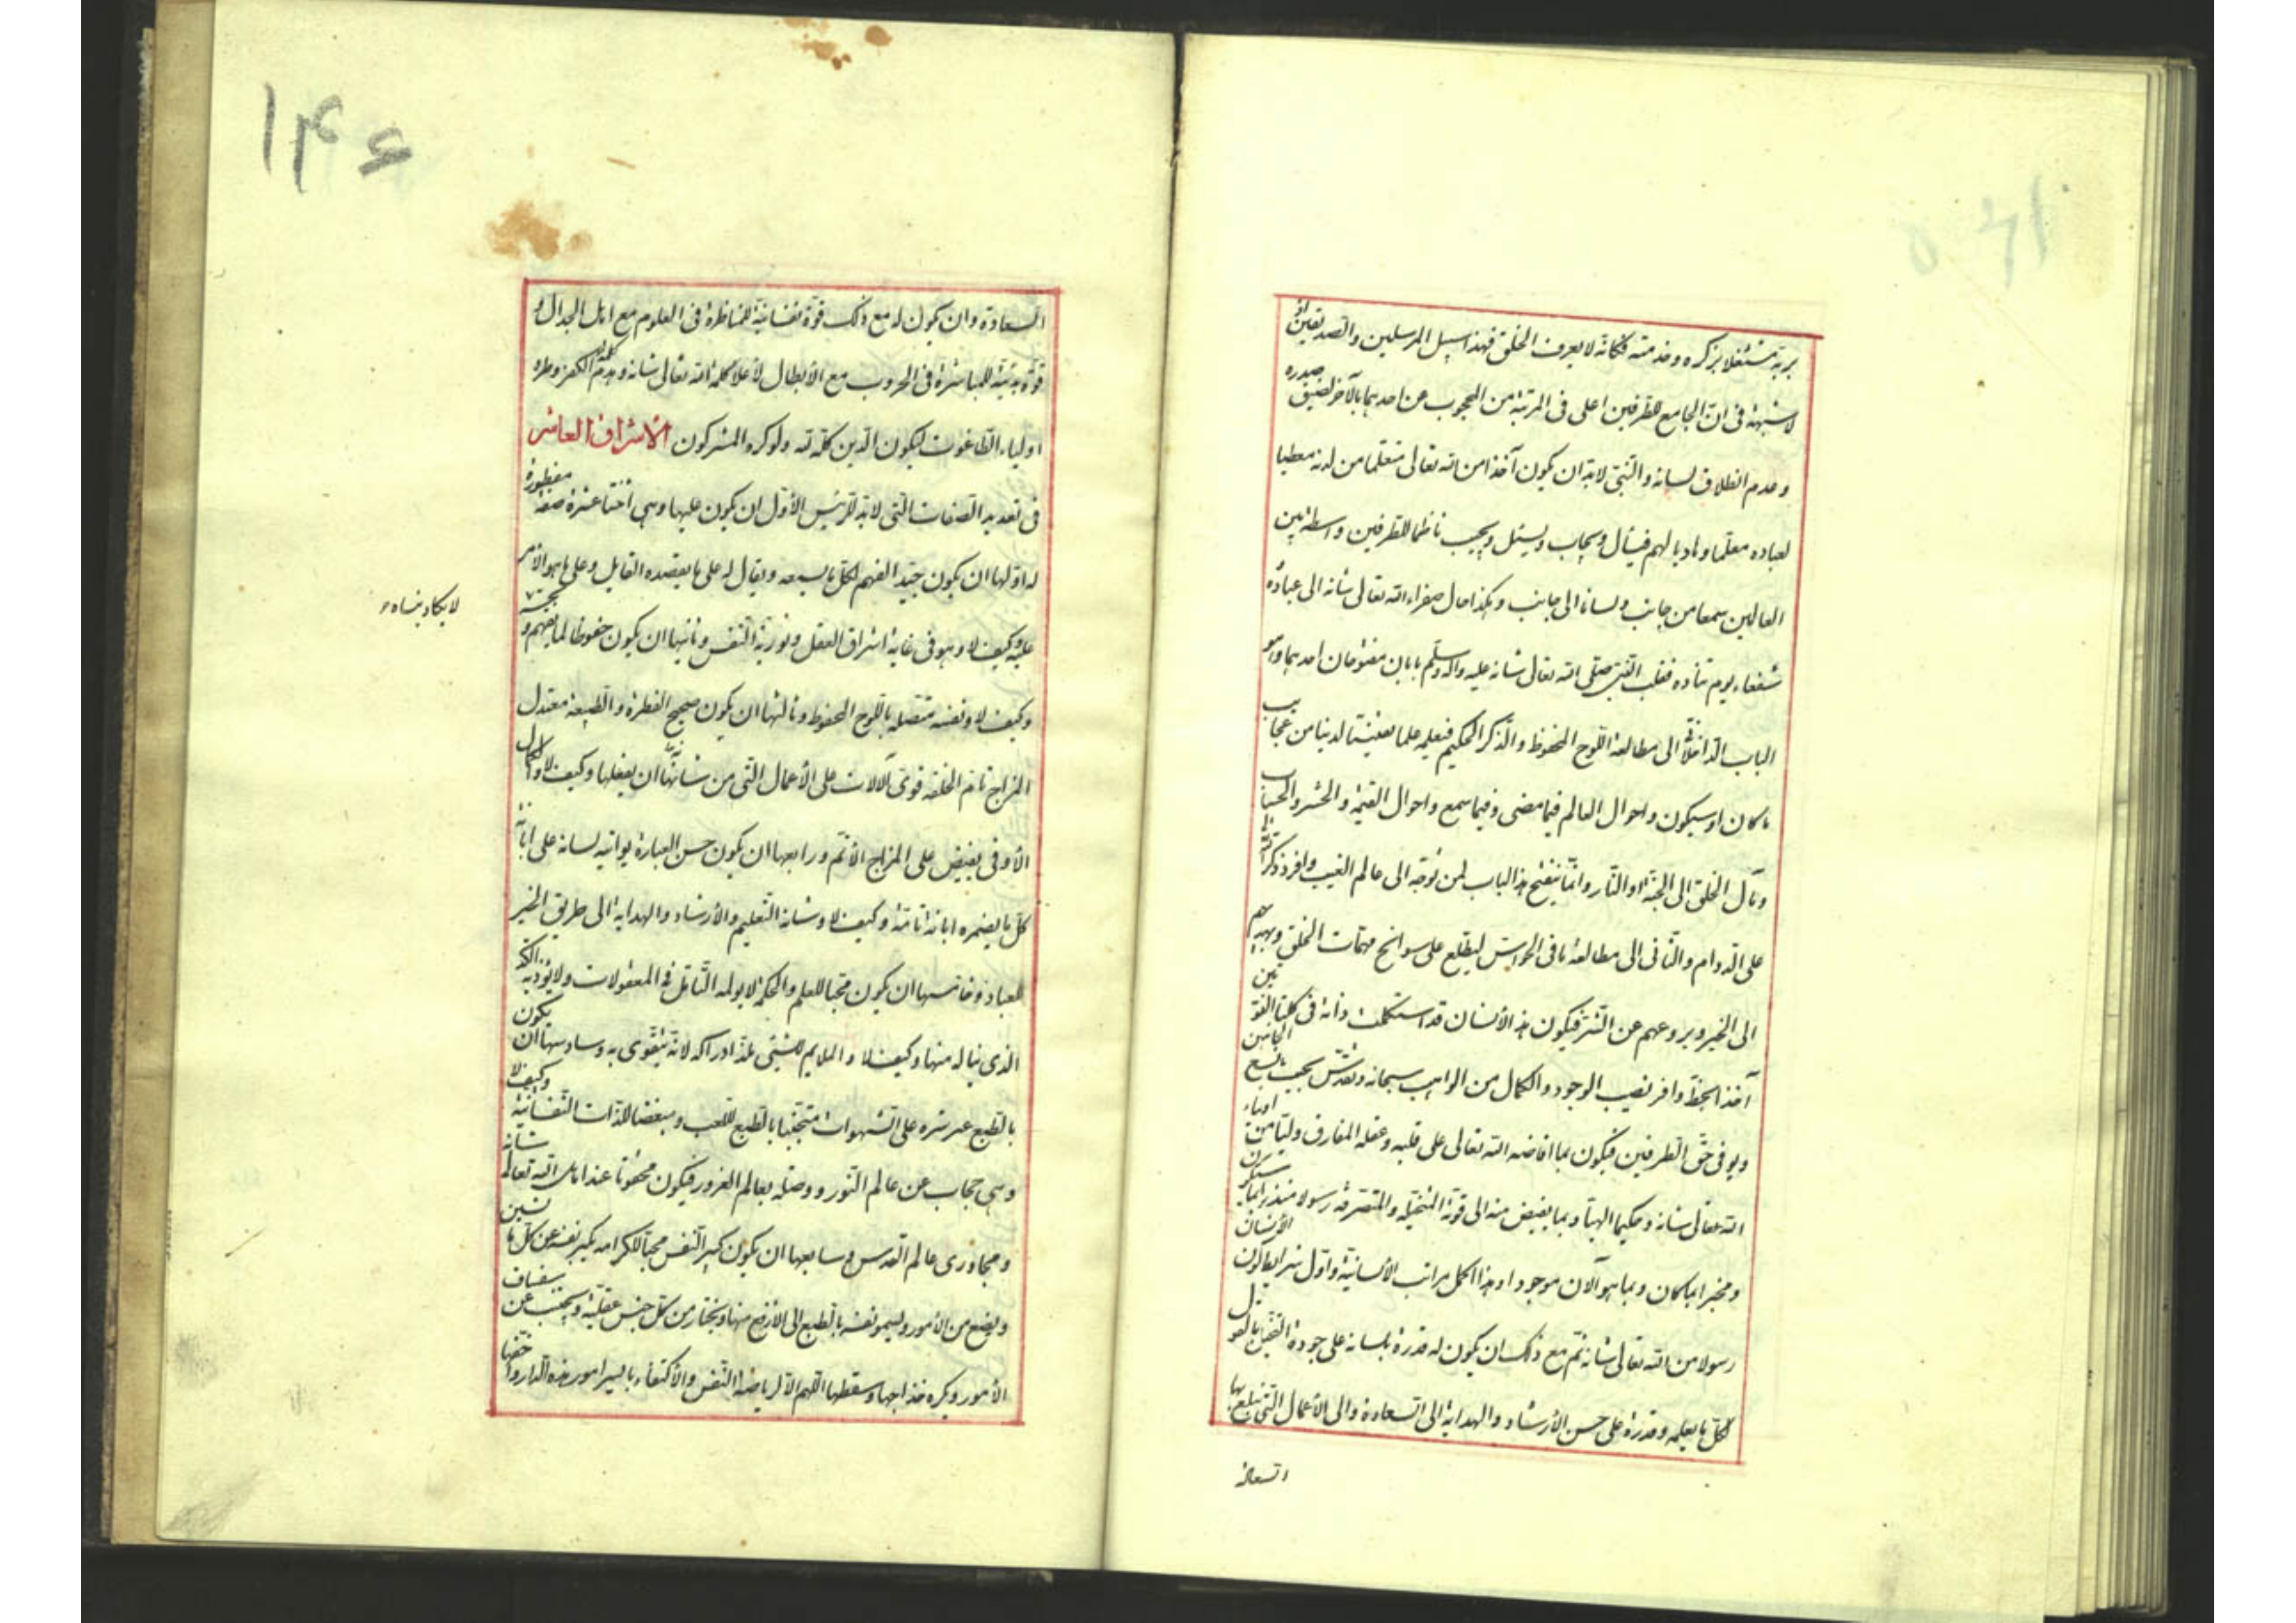 بربه مشتغلا بذكره وخدمته فكانه لا يعرف الخلق فهذا سبيل المرسلين والصديقين اذ
لا شبهة فى ان الجامع للطرفين اعلى فى المرتبة من المحجوب عن احديهما بالآخر لضيق صدره
وعدم انطلاق لسانه والنبى لابد ان يكون آخذا من الله تعالى متعلما من لدنه معطيا
لعباده معلما وهاديا لهم فيسأل ويجاب ويسئل ويجيب ناظما للطرفين واسطة بين
العالمين سمعا من جانب ولسانا الى جانب وهكذا حال سفراء الله تعالى شانه الى عباده و
شفعاء يوم تناده فقلب النبى صلى الله تعالى شانه عليه واله وسلم بابان مفتوحان احديهما وهو
الباب الداخلانى الى مطالعة اللوح المحفوظ والذكر الحكيم فيعلمه علما يقينيا لدنيا من عجايب
ما كان او سيكون واحوال العالم فيما مضى وفيما سيقع واحوال القيمة والحشر والحساب
ومآل الخلق الى الجنة او النار وانما ينفتح هذا الباب لمن توجه الى عالم الغيب وافرد ذكر الله تعالى
على الدوام والثانى الى مطالعة ما فى الحواس ليطلع على سوانح مهمات الخلق ويهديهم
الى الخير ويردعهم عن الشر فيكون هذا الانسان قد استكملت ذاته فى كلتا القوتين
آخذا بحظ وافر نصيب الوجود والكمال من الواهب سبحانه وتقدس بحيث يسع الجانبين
ويوفى حق الطرفين فيكون بما افاضه الله تعالى على قلبه وعقله المفارق وليا من اولياء
الله تعالى شانه وحكيما الهيا وبما يفيض منه الى قوته المتخيلة والمتصرفة رسولا منذرا بما سيكون
ومخبرا بما كان وبما هو الآن موجود وهذا اكمل مراتب الانسانية واول شرايط كون الانسان
رسولا من الله تعالى شانه ثم مع ذلك ان يكون له قدرة بلسانه على جودة التخيل بالقول
لكل ما يعلمه وقدرة على حسن الارشاد والهداية الى السعادة والى الاعمال التى يبلغ بها
السعادة
۱۴۶
السعادة وان يكون له مع ذلك قوة نفسانية للمناظرة فى العلوم مع اهل الجدال و
قوة بدنية للمباشرة فى الحروب مع الابطال لاعلاء كلمة الله تعالى شانه وهدم كلمة الكفر وطرد
اولياء الطاغوت ليكون الدين كله لله ولو كره المشركون الاشراق العاشر
فى تعديد الصفات التى لابد للرئيس الاول ان يكون عليها وهى اثنتا عشرة صفة مفطورة
له اولها ان يكون جيد الفهم لكل ما يسمعه ويقال له على ما يقصده القايل وعلى ما هو الامر
عليه وكيف لا وهو فى غاية اشراق العقل ونورية النفس وثانيها ان يكون حفوظا لما يفهمه و يحسه
لا يكاد ينساه
وكيف لا ونفسه متصلة باللوح المحفوظ وثالثها ان يكون صحيح الفطرة والطبيعة معتدل
المزاج تام الخلقة قوى الآلات على الاعمال التى من شانها ان يفعلها وكيف لا والكمال
الاوفى يفيض على المزاج الاتم ورابعها ان يكون حسن العبارة يواتيه لسانه على ابانة
كل ما يضمره ابانة تامة وكيف لا وشانه التعليم والارشاد والهداية الى طريق الخير
للعباد وخامسها ان يكون محبا للعلم والحكمة لا يولمه التامل فى المعقولات ولا يوذيه الكد
الذى يناله منها وكيف لا والملايم للشئ يلذ ادراكه لانه يتقوى به وسادسها ان يكون
بالطبع غير شره على الشهوات متجنبا بالطبع للعب ومبغضا للذات النفسانية وكيف لا
وهى حجاب عن عالم النور ووصلة بعالم الغرور فيكون ممقوتا عند اهل الله تعالى شانه
ومجاورى عالم القدس وسابعها ان يكون كبير النفس محبا للكرامة يكبر نفسه عن كل ما يشين
ويضع من الامور ويسمو نفسه بالطبع الى الارفع منها ويختار من كل جنس عقيلته ويجتنب عن سفساف
الامور ويكره خداجها وسقطها اللهم الا لرياضة النفس والاكتفاء بايسر امور هذه الدار واخفها